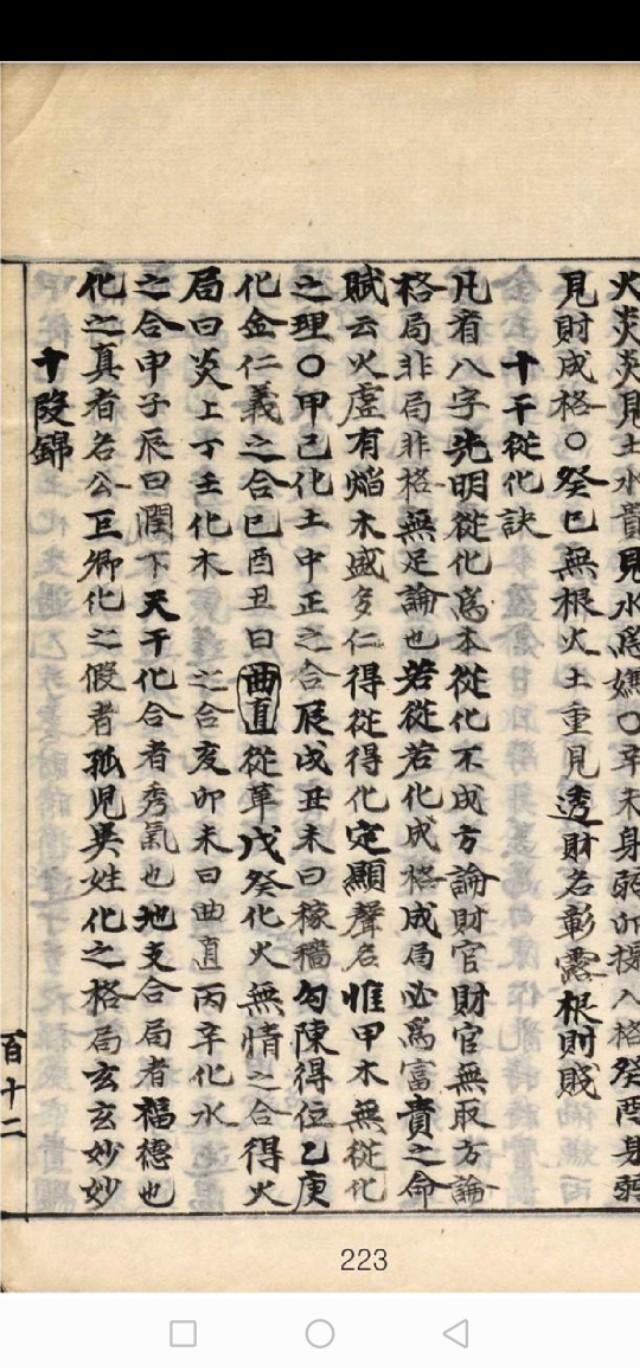 火炎炎見土水音見水為媯〇辛未身弱卯提入格癸酉身弱
見財成格〇癸巳無根火土重見透財名彰露根則賤
十干從化訣
凡看八字先明從化為本從化不成方論財官財官無取方論
格局非局非格無足論也若從若化成格成局必為富貴之命
賦云火虛有焰木盛多仁得從得化定顯聲名惟甲木無從化
之理〇甲己化土中正之合辰戌丑未曰稼穡勾陳得位乙庚
化金仁義之合巳酉丑曰曲直從革戊癸化火無情之合得火
局曰炎上丁壬化木之合亥卯未曰曲直丙辛化水
之合申子辰曰潤下天干化合者秀氣也地支合局者福德也
化之真者名公巨卿化之假者孤兒異姓化之格局玄玄妙妙
十段錦
百十二
223